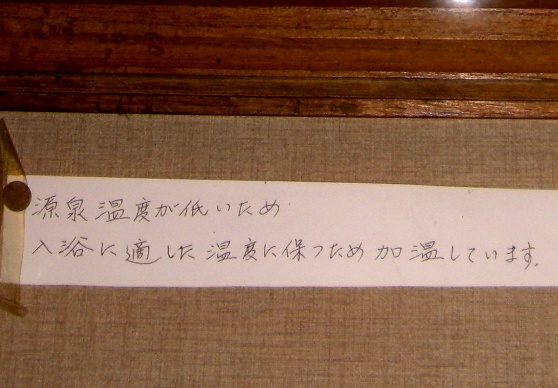 源泉温度が低いため
入浴に適した温度に保つため加温しています。